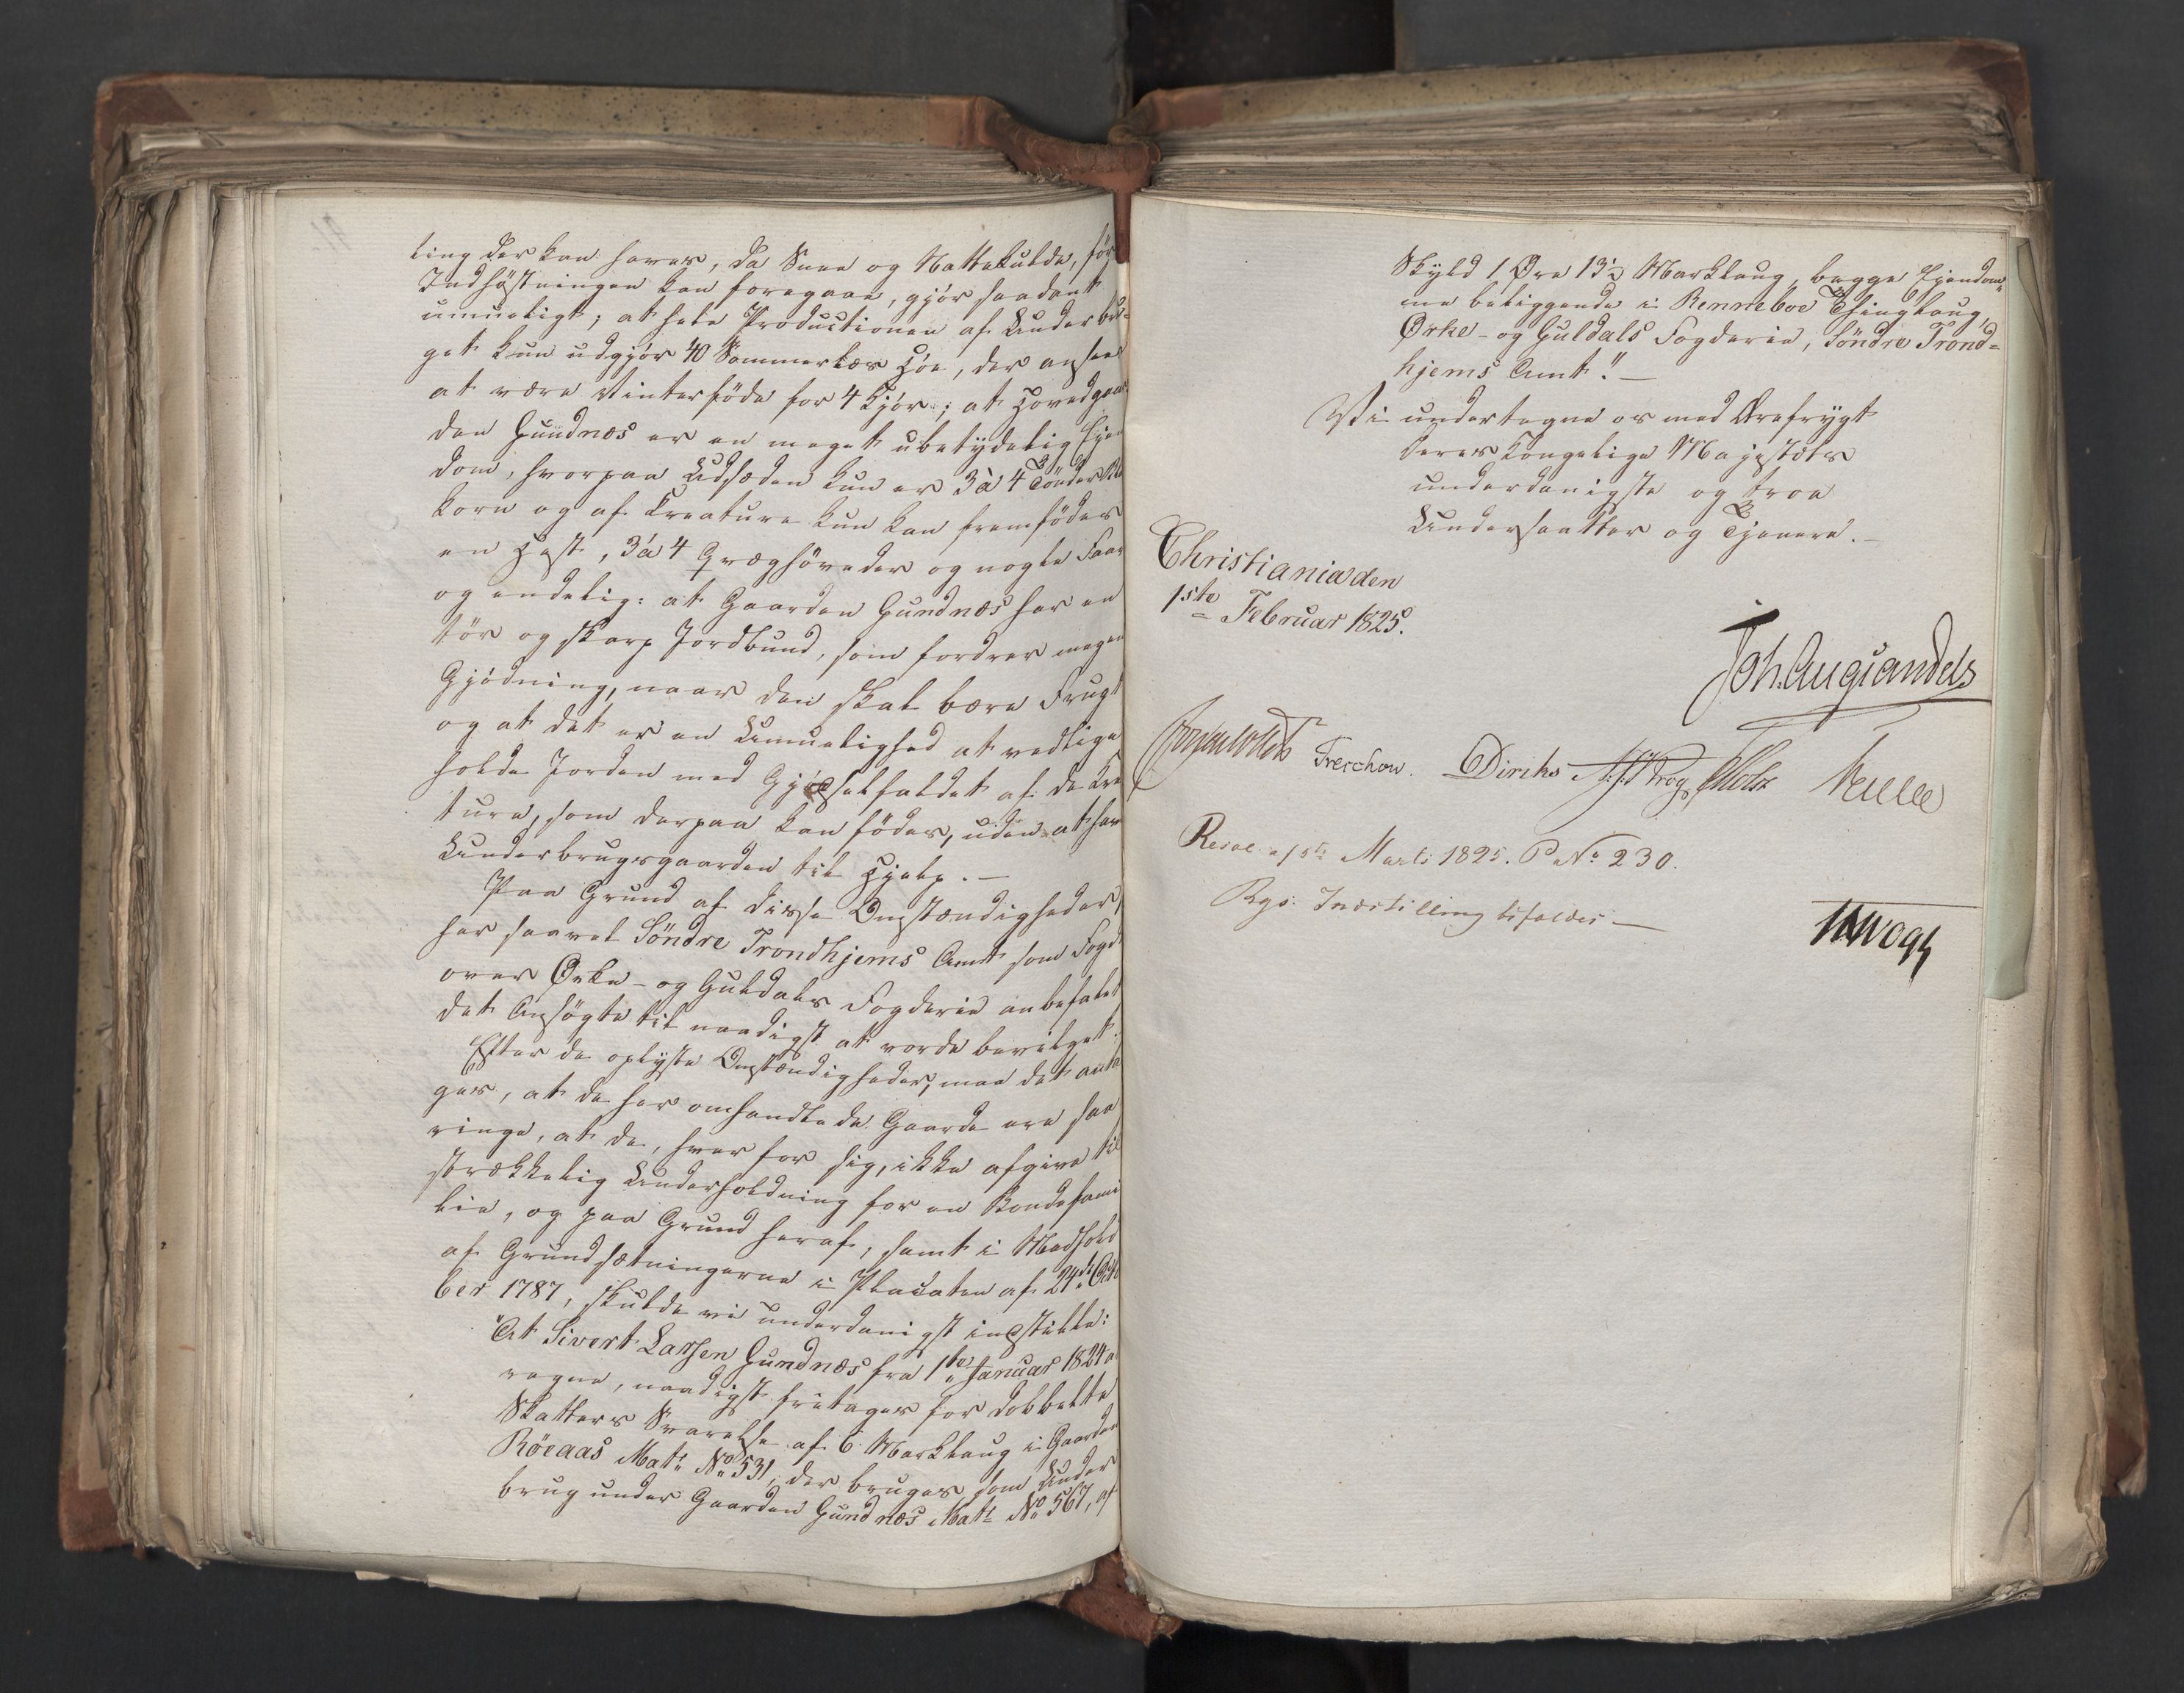 ling der kan haves, da Snee og Nattekulde, før
Indhøstningen kan foregaae, gjør saadant
umueligt; at hele Productionen af Underbru-
get kun udgjør 40 Sommerlæs Høe, der ansees
at være Vinterføde for 4 Kjør; at Hovedgaar
den Gundnæs er en meget ubetydelig Eien
dom, hvorpaa Udsæden kun er 3 à 4 Tønder
Korn og af Creature kun kan fremfødes
en Hest, 3 à 4 Qvæghøveder og nogle Faar
og endelig: at Gaarden Gundnæs har en
tør og skarp Jordbund, som fordrer megen
Gjødning, naar den skal bære Frugt
og at det er en Umuelighed at vedlige
holde Jorden med Gjødselfaldet af de Kre
ture, som derpaa kan fødes, uden at have
Underbrugsgaarden til Hjelp. —
Paa Grund af disse Omstændigheder,
har saavel Söndre Trondhjems Amt som Fogden
over Ørke- og Guldals Fogderie anbefalet
det Ansøgte til naadigst at vorde bevilget.
Efter de oplyste Omstændigheder, maa det anta
ges, at de her omhandlede Gaarde ere saa
ringe, at de, hver for sig, ikke afgive til
strækkelig Underholdning for en Bondefami
lie, og paa Grund heraf, samt i Medhold
af Grundsætningerne i Placaten af 24de Octo
ber 1787, skulde vi underdanigst indstille:
"At Sivert Larsen Gundnæs fra 1ste Januar 1824 a
regne, naadigst fritages for dobbelte
Skatters Svarelse af 6 Marklaug i Gaarden
Röeaas Matr No 531, der bruges som Under
brug under Gaarden Gundnæs Matr No 567, af
Skyld 1 Øre 13½ Marklaug, begge Eiendom-
me beliggende i Renneboe Thinglaug,
Ørke- og Guldals Fogderie, Söndre Trond-
hjems Amt." —
Vi undertegne os med Ærefrygt
Deres Kongelige Majestæts
underdanigste og troe
Undersaatter og Tjenere. —
Christiania den
1ste Februar 1825.
Joh. Aug. Sandels
Treschow. Diriks Krog Holst
Resol. 1ste Marti 1825. P No 230.
Rgs. Indstilling bifaldes —